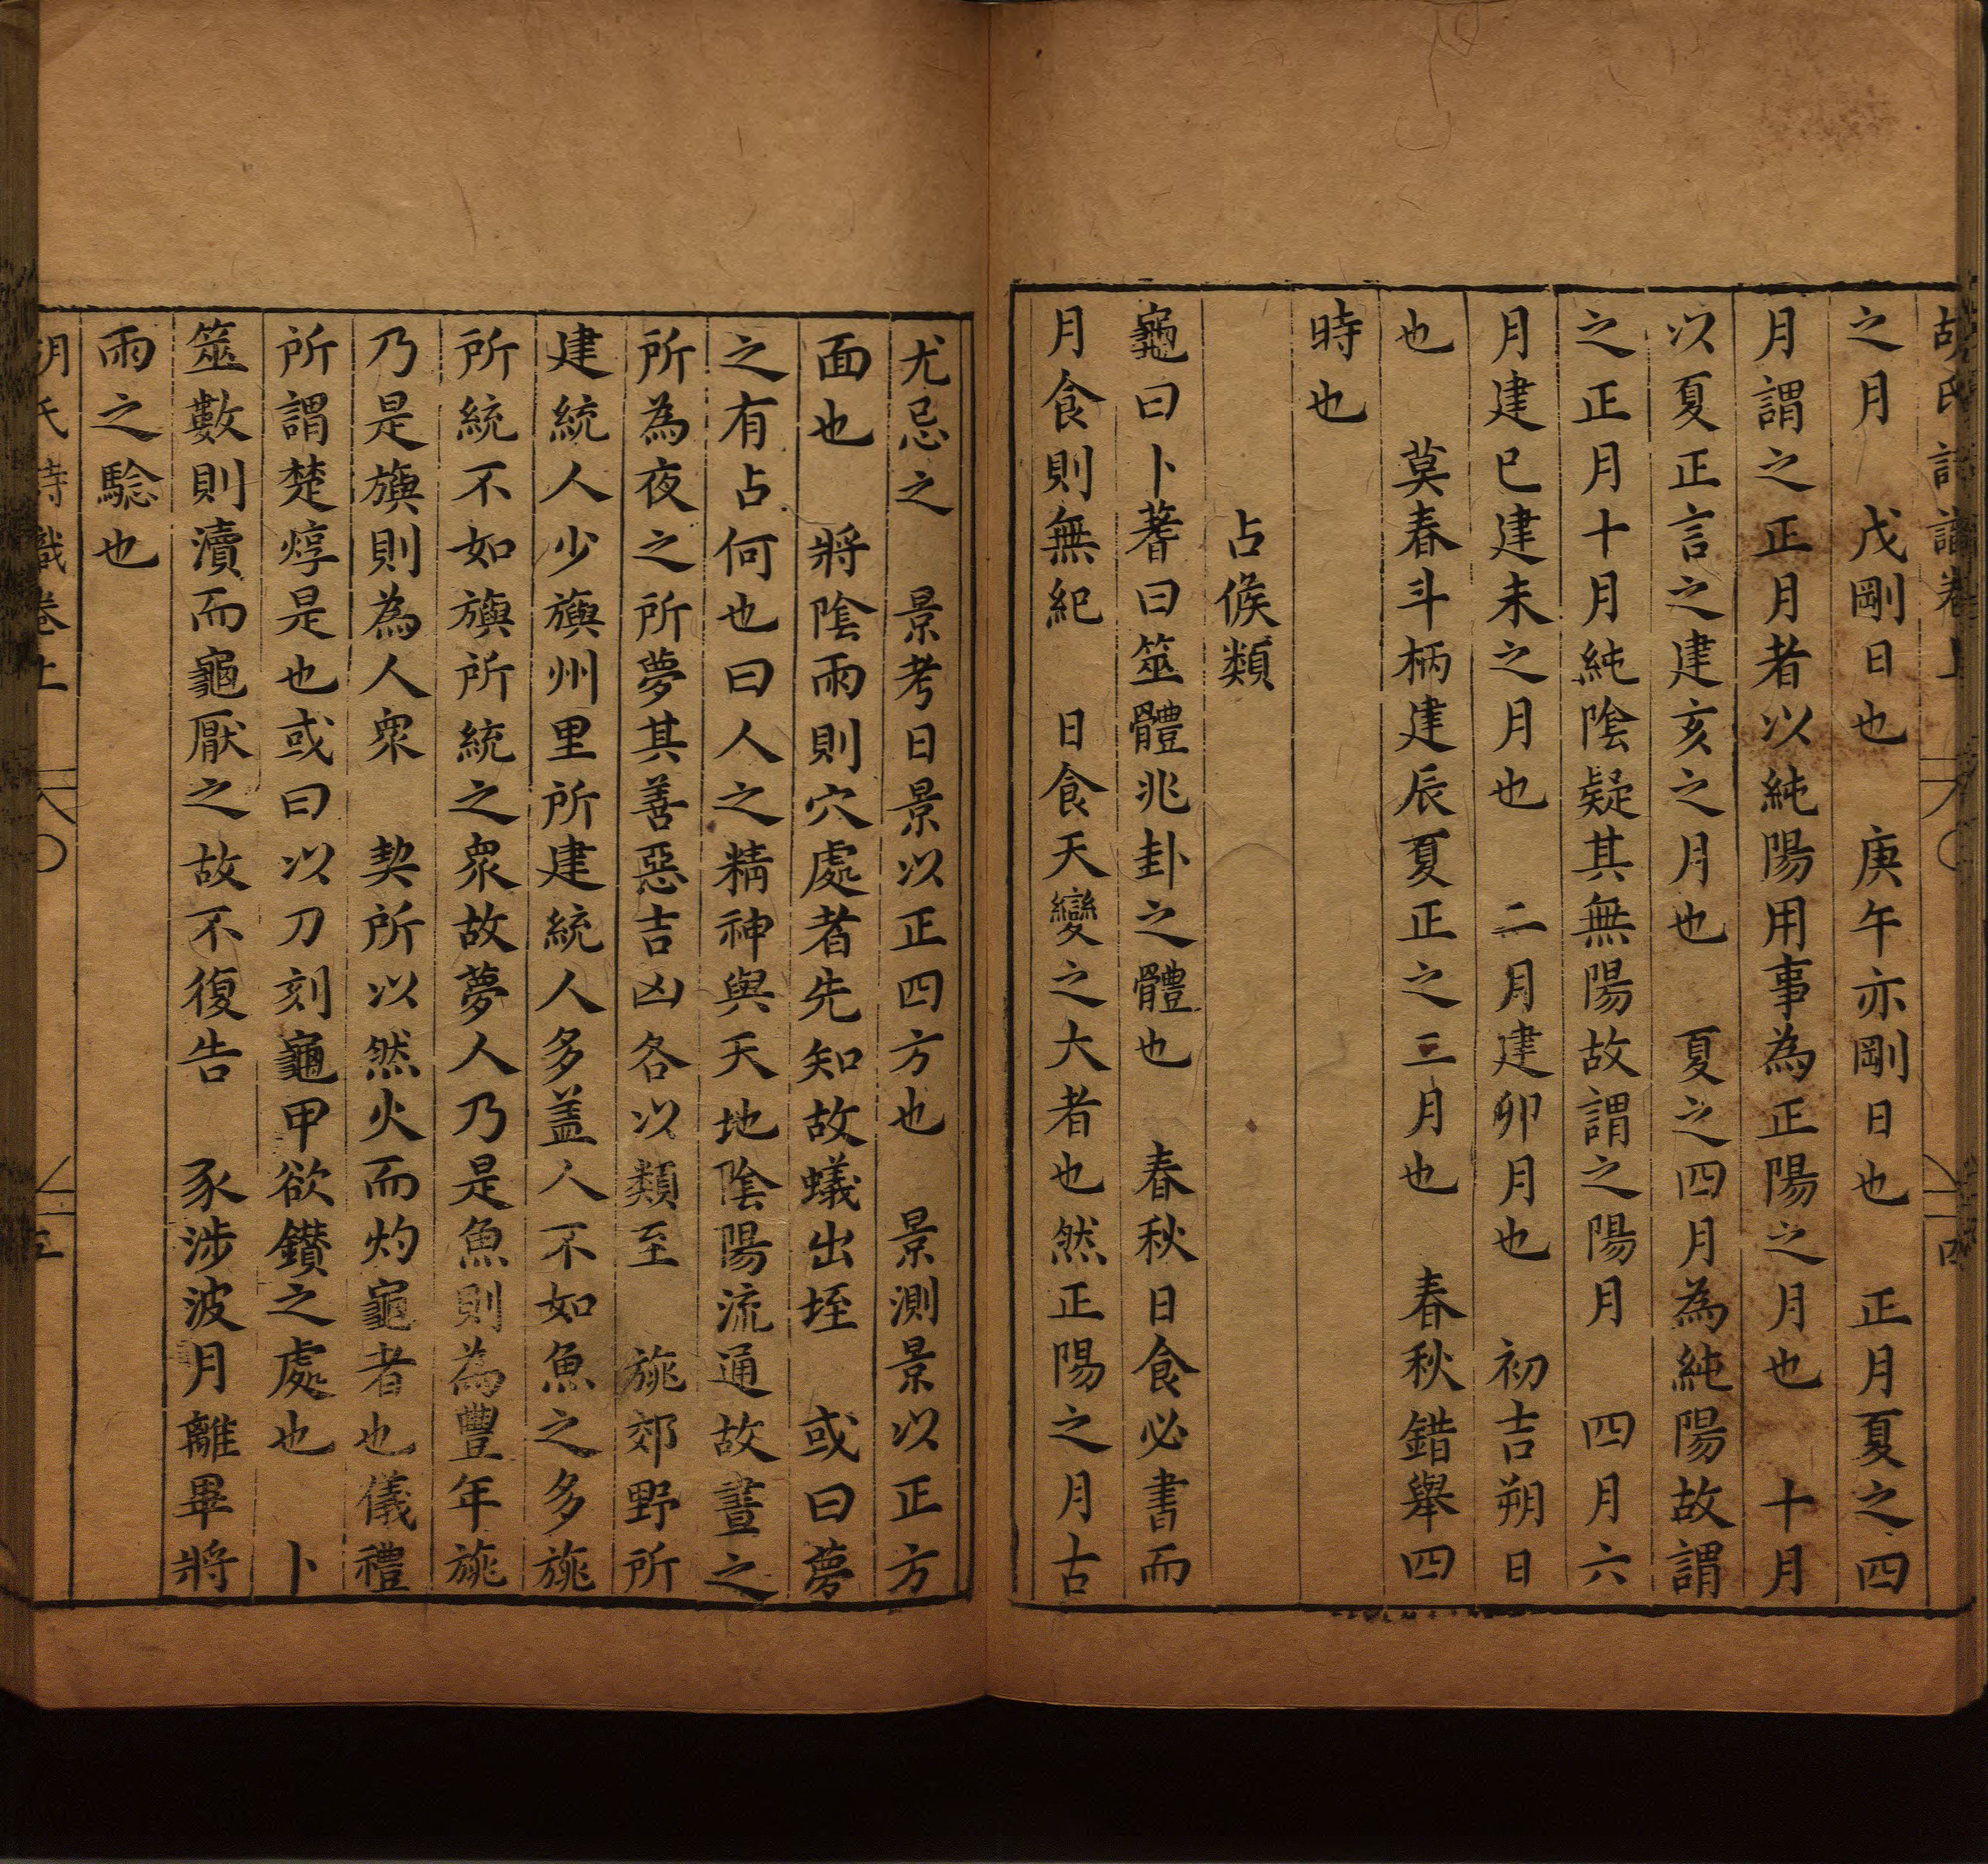 之月　戊剛日也　庚午亦剛日也　正月夏之四
月謂之正月者以純陽用事為正陽之月也　十月
以夏正言之建亥之月也　夏之四月為純陽故謂
之正月十月純陰疑其無陽故謂之陽月　四月六
月建巳建未之月也　二月建卯月也　初吉朔日
也　莫春斗柄建辰夏正之三月也　春秋錯舉四
時也
占候類
龜曰卜蓍曰筮體兆卦之體也　春秋日食必書而
月食則無紀　日食天變之大者也然正陽之月古
尤忌之　景考日景以正四方也　景測景以正方
面也　將陰雨則穴處者先知故蟻出垤　或曰夢
之有占何也曰人之精神與天地陰陽流通故晝之
所為夜之所夢其善惡吉凶各以類至　旐郊野所
建統人少旟州里所建統人多蓋人不如魚之多旐
所統不如旟所統之眾故夢人乃是魚則為豐年旐
乃是旟則為人眾　契所以然火而灼龜者也儀禮
所謂楚焞是也或曰以刀刻龜甲欲鑽之處也　卜
筮數則瀆而龜厭之故不復告　豕涉波月離畢將
雨之騐也